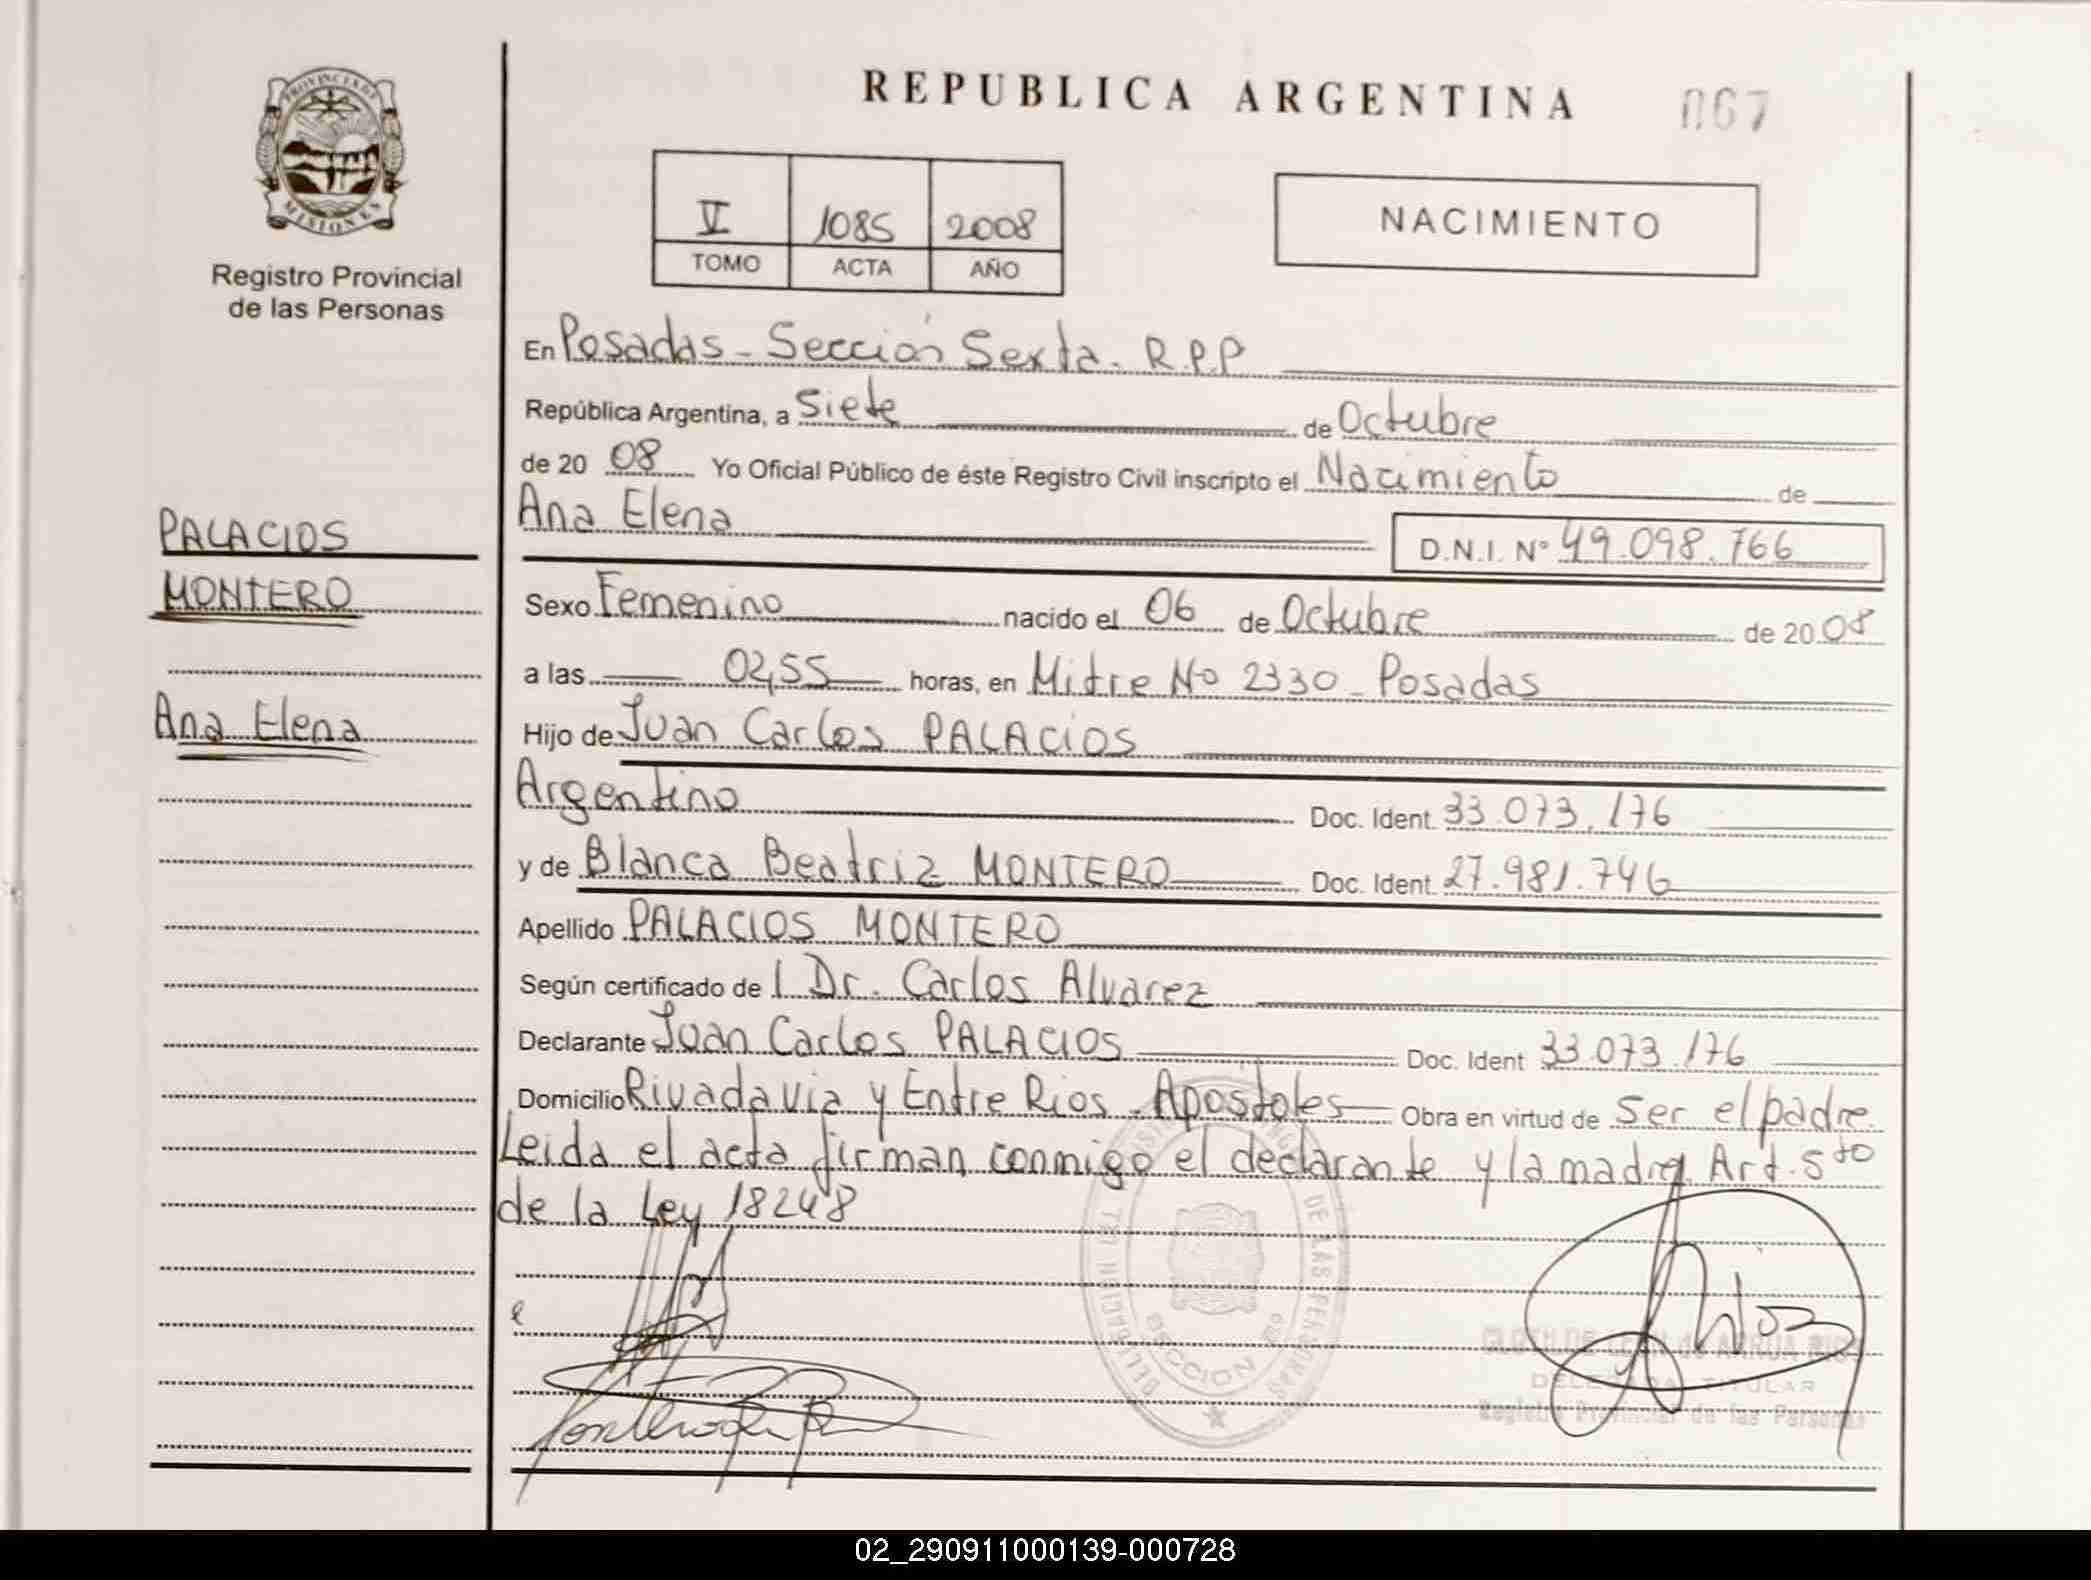 REPUBLICA ARGENTINA
067
PROVINCIA DE
MISIONES
Registro Provincial
de las Personas
V 1085 2008
TOMO ACTA AÑO
NACIMIENTO
En Posadas - Sección Sexta. R.P.P
República Argentina, a Siete de Octubre
de 20 08 Yo Oficial Público de éste Registro Civil inscripto el Nacimiento de
Ana Elena
D.N.I. Nº 49.098.766
PALACIOS
MONTERO
Ana Elena
Sexo Femenino nacido el 06 de Octubre de 20 08
a las 02,55 horas, en Mitre Nº 2330 - Posadas
Hijo de Juan Carlos PALACIOS
Argentino Doc. Ident. 33.073.176
y de Blanca Beatriz MONTERO Doc. Ident. 27.981.746
Apellido PALACIOS MONTERO
Según certificado de l Dr. Carlos Alvarez
Declarante Juan Carlos PALACIOS Doc. Ident 33.073.176
Domicilio Rivadavia y Entre Rios - Apostoles Obra en virtud de ser el padre
Leida el acta firman conmigo el declarante y la madre Art. 5to
de la Ley 18248
DE LAS PERSONAS
SECCION 6º
DELEGADA TITULAR
Registro Provincial de las Personas
02_290911000139-000728